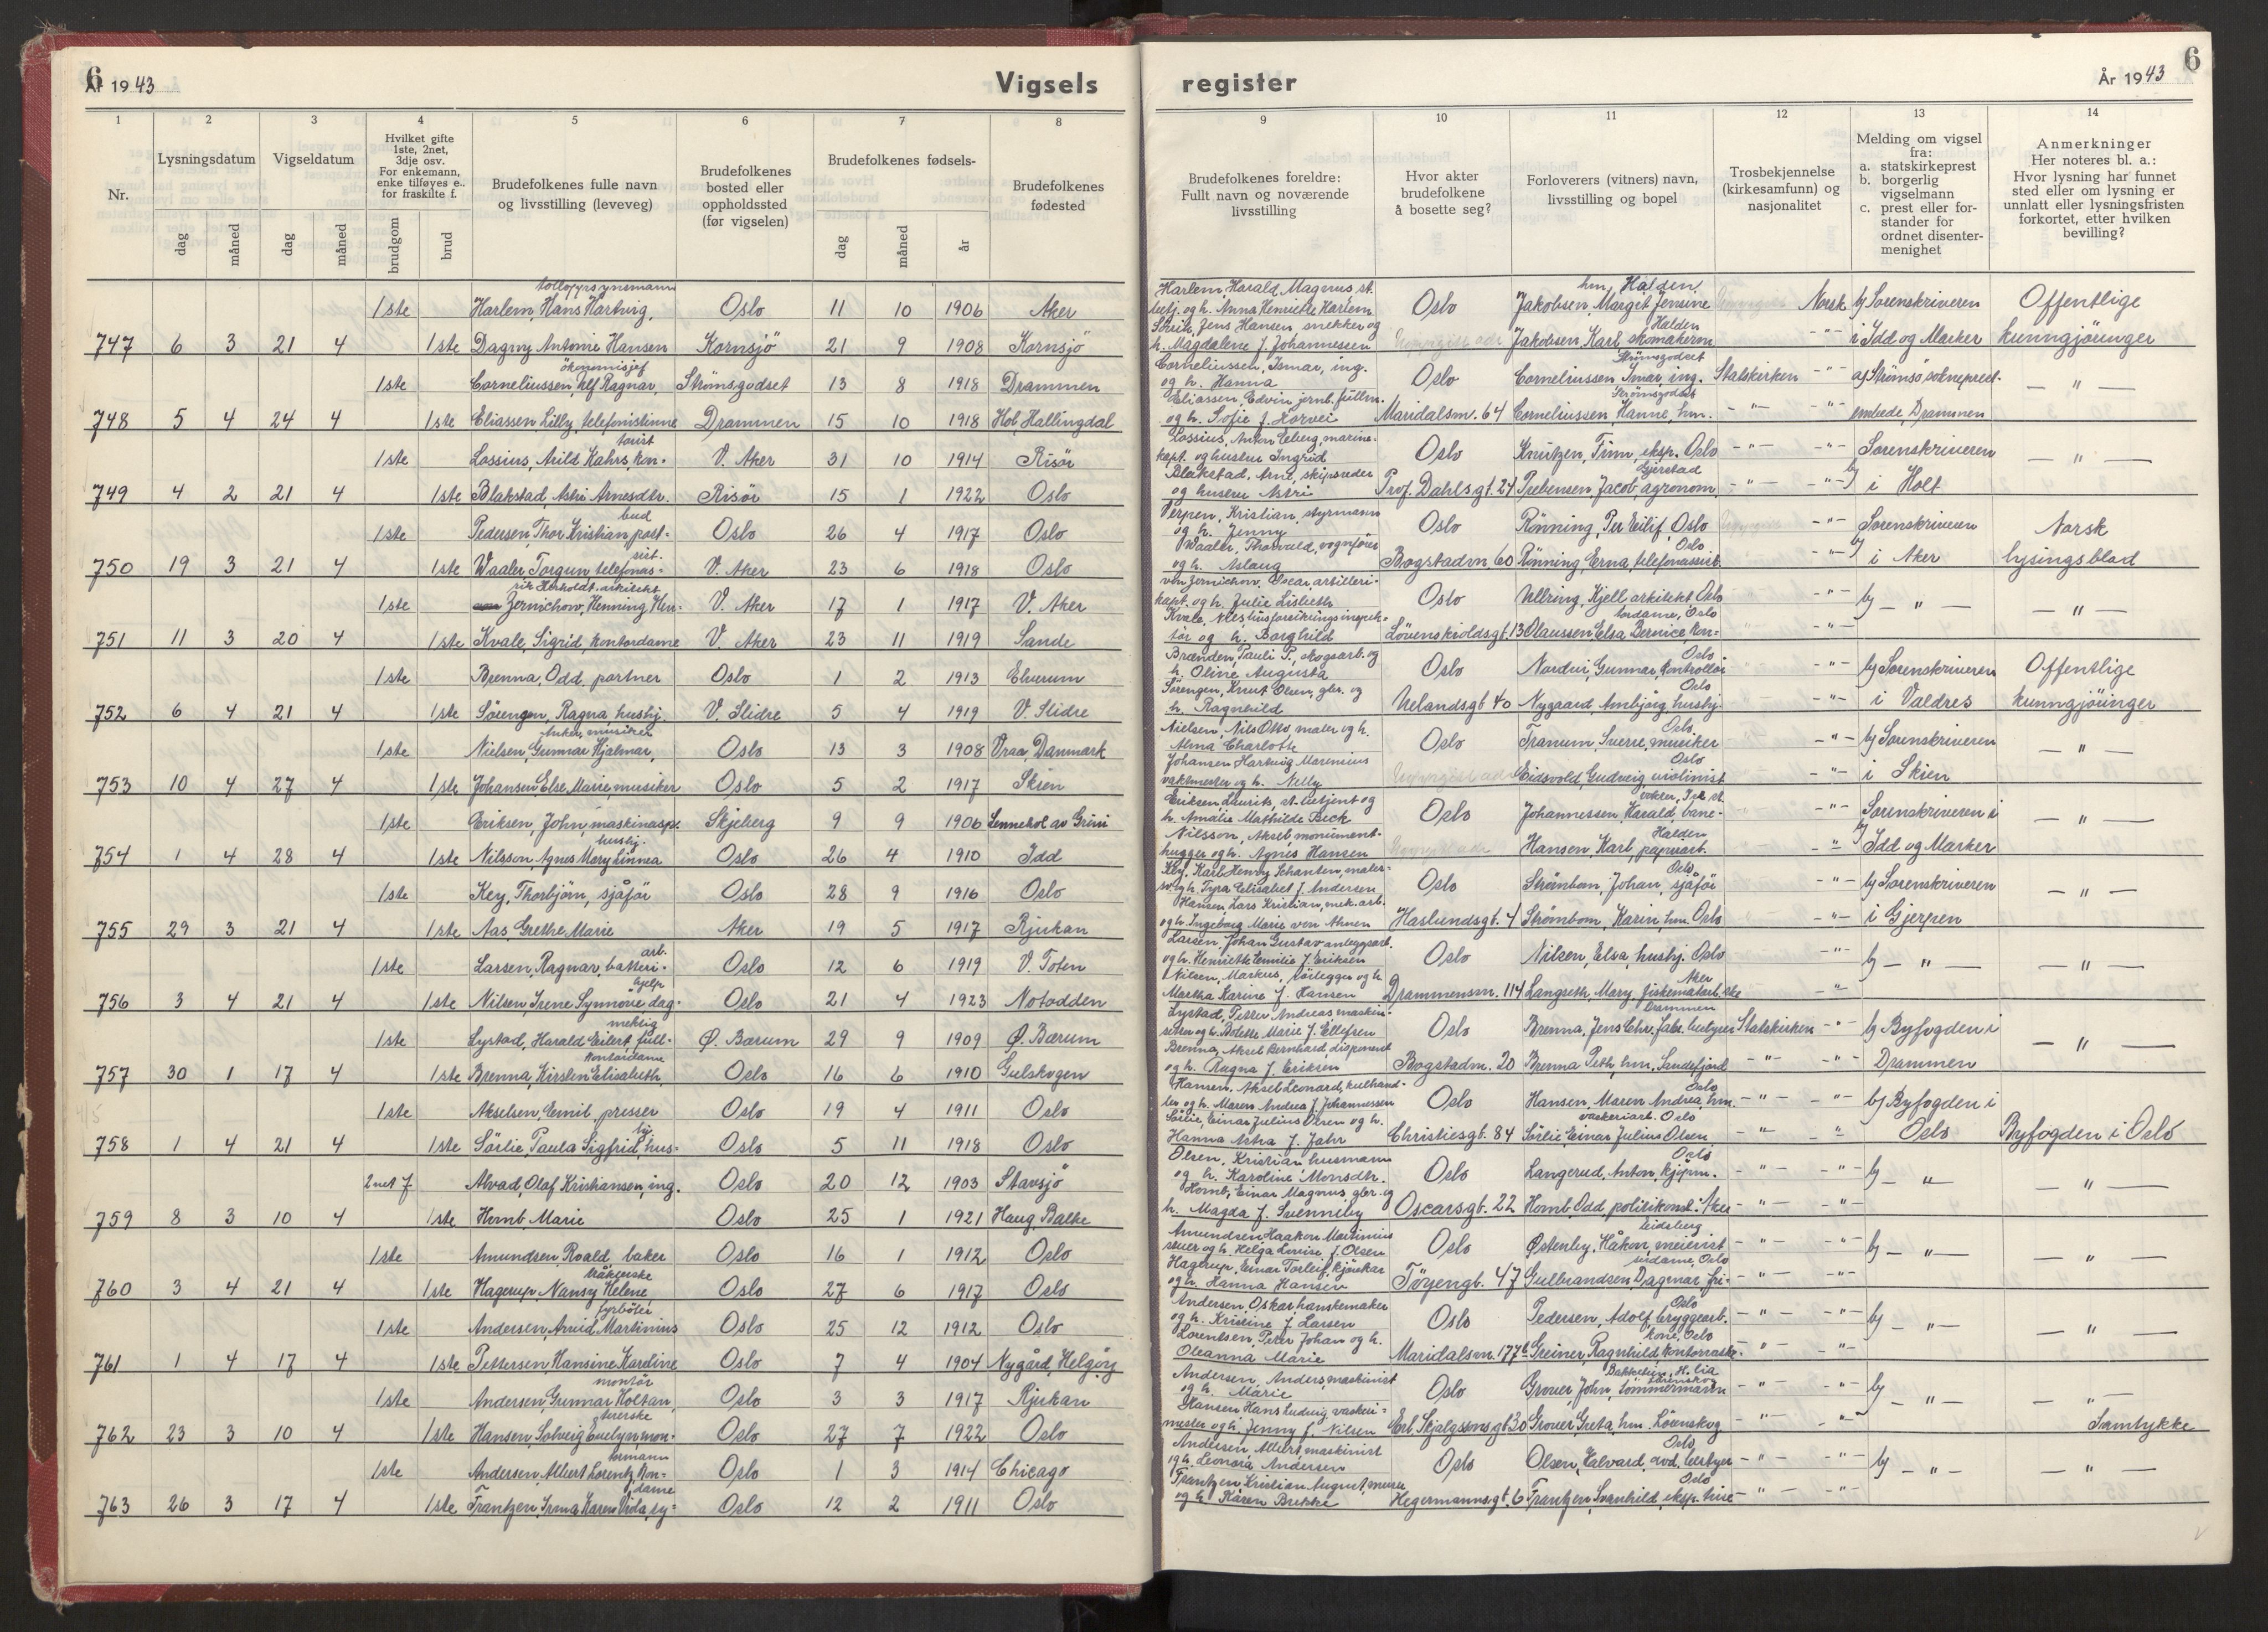 6
År 1943
Vigsels
1 2 3 4 5 6 7 8
Nr.
Lysningsdatum
Vigseldatum
Hvilket gifte
1ste, 2net,
3dje osv.
For enkemann,
enke tilføyes e.,
for fraskilte f.
Brudefolkenes fulle navn
og livsstilling (leveveg)
Brudefolkenes
bosted eller
oppholdssted
(før vigselen)
Brudefolkenes fødsels-
Brudefolkenes
fødested
dag måned dag måned brudgom brud dag måned år
1ste Harlem, Hans Hartvig, Oslo 11 10 1906 Aker
747 6 3 21 4 1ste Dagny Antonie Hansen Kornsjö 21 9 1908 Kornsjö
økonomisjef
1ste Corneliussen, Alf Ragnar, Strømsgodset 13 8 1918 Drammen
748 5 4 24 4 1ste Eliassen Lilly, telefonistinne Drammen 15 10 1918 Hol, Hallingdal
torist
1ste Lossius, Arild Kahrs, kon- V. Aker 31 10 1914 Risör
749 4 2 21 4 1ste Blakstad, Astri Arnesdtr. Risör 15 1 1922 Oslo
bud
1ste Pedersen, Thor Kristian, post- Oslo 26 4 1917 Oslo
sist.
750 19 3 21 4 1ste Waaler Torgun telefonas- V. Aker 23 6 1918 Oslo
rik Herholdt, arkitekt
1ste Zernichow, Henning Hen- V. Aker 17 1 1917 V. Aker
751 11 3 20 4 1ste Kvale, Sigrid, kontordame V. Aker 23 11 1919 Sande
1ste Brenna, Odd, portner Oslo 1 2 1913 Elverum
752 6 4 21 4 1ste Sörengen, Ragna, hushj. V. Slidre 5 4 1919 V. Slidre
Anker, musiker
1ste Nielsen, Gunnar Hjalmar, Oslo 13 3 1908 Vraa, Danmark
753 10 4 27 4 1ste Johansen Else Marie, musiker Oslo 5 2 1917 Skien
1ste Eriksen, John, maskinasp. Skjeberg 9 9 1906 Sennehol av Grini
hushj.
754 1 4 28 4 1ste Nilsson Agnes Mary Linnea Oslo 26 4 1910 Idd
1ste Key, Thorbjörn, sjåför Oslo 28 9 1916 Oslo
755 29 3 21 4 1ste Aas, Grethe Marie Aker 19 5 1917 Rjukan
arb.
1ste Larsen, Ragnar, batteri- Oslo 12 6 1919 V. Toten
hjelp
756 3 4 21 4 1ste Nilsen, Irene Synnöve dag- Oslo 21 4 1923 Notodden
mektig
1ste Lystad, Harald Eilert, full- Ø. Bærum 29 9 1909 Ø. Bærum
kontordame
757 30 1 17 4 1ste Brenna, Kirsten Elisabeth, Oslo 16 6 1910 Gulskogen
1ste Akselsen, Emil presser Oslo 19 4 1911 Oslo
hj.
758 1 4 21 4 1ste Sörlie, Paula Sigfrid, hus- Oslo 5 11 1918 Oslo
2net f Alvad, Olaf Kristiansen, ing. Oslo 20 12 1903 Stavsjö
759 8 3 10 4 1ste Homb Marie Oslo 25 1 1921 Haug, Balke
1ste Amundsen, Roald, baker Oslo 16 1 1912 Oslo
760 3 4 21 4 1ste Hagerup, Nansy Helene Oslo 27 6 1917 Oslo
fyrböter
1ste Andersen, Arvid Martinius Oslo 25 12 1912 Oslo
761 1 4 17 4 1ste Pettersen, Hansine Karoline Oslo 7 4 1904 Nygård, Helgöy
montör
1ste Andersen, Gunnar Holtan, Oslo 3 3 1917 Rjukan
tererske
762 23 3 10 4 1ste Hansen, Solveig Evelyn, mon- Oslo 27 7 1922 Oslo
tormann
1ste Andersen, Albert Lorentz, kon- Oslo 1 3 1914 Chicago
dame
763 26 3 17 4 1ste Frantzen, Irma Karen Vida, sy- Oslo 12 2 1911 Oslo
register
År 1943
6
9 10 11 12 13 14
Brudefolkenes foreldre:
Fullt navn og noværende
livsstilling
Hvor akter
brudefolkene
å bosette seg?
Forloverers (vitners) navn,
livsstilling og bopel
Trosbekjennelse
(kirkesamfunn) og
nasjonalitet
Melding om vigsel
fra:
a. statskirkeprest
b. borgerlig
vigselmann
c. prest eller for-
stander for
ordnet disenter-
menighet
Anmerkninger
Her noteres bl. a.:
Hvor lysning har funnet
sted eller om lysning er
unnlatt eller lysningsfristen
forkortet, etter hvilken
bevilling?
Harlem Harald Magnus st. hm, Halden
betj. og h. Anna Henriette Harlem Oslo Jakobsen, Margit Jensine Norsk b) Sorenskriveren Offentlige
Jens Hansen, snekker og Halden
h. Magdalene f. Johannessen Jakobsen Karl skomakerm. -"- i Idd og Marker kunngjöringer
Corneliussen, Ismar, ing. Strømsgodset
og h. Hanna Oslo Corneliussen, Ismar, ing. Statskirken -"- a) Strømsø sokneprest- — " —
Eliassen, Edvin jernb. fullm. Strømsgodset
og h. Sofie f. Horvei Maridalsvn. 64 Corneliussen, Hanne, hm. -"- -"- embede, Drammen
Lossius, Anton Eeberg, marine-
kapt. og hustru Ingrid Oslo Knutzen, Finn, eksp. Oslo -"- -"- Sorenskriveren — " —
Blakstad, Arne, skipsreder Gjerstad
og hustru Astri Prof. Dahlsgt. 24 Prebensen, Jacob, agronom -"- -"- b) i Holt
Verpen, Kristian, styrmann
og h. Jenny Oslo Rönning, Per Eilif, Oslo -"- Sorenskriveren Norsk
Waaler, Thorvald, vognfører Oslo
og h. Aslaug Bogstadvn 60 Rönning, Erna, telefonassist. -"- b) i Aker lysingsblad
von Zernichow, Oscar, artilleri-
kapt. og h. Julie Lisbeth Oslo Ullring, Kjell arkitekt Oslo -"- b) — " — — " —
Kvale, Nils, husforsikringsinspek- tordame, Oslo
tör og h. Borghild Lövenskioldsgt. 13 Olaussen Elsa Bernice kon- -"-
Brænden, Pauli P., skogsarb. og Oslo
h. Oline Augusta Oslo Nordvi, Gunnar, kontrollör -"- b) Sorenskriveren Offentlige
Sörengen, Knut Olsen, gbr. og Oslo
h. Ragnhild Uelandsgt 40 Nygaard, Ambjörg hushj. -"- i Valdres kunngjöringer
Nielsen, Nils Otto maler og h. Oslo
Alma Charlotte Oslo Tranum, Sverre, musiker -"- b) Sorenskriveren — " —
Johansen Hartwig Marenius Oslo
vaktmester og h. Nelly Eidsvold, Gudveig violinist -"- i Skien
Eriksen Laurits, st. betjent og
h. Amalie Mathilde Beck Oslo Johannessen, Harald, bane- -"- Sorenskriveren i — " —
Nilsson, Aksel, monument- Halden
hugger og h. Agnes Hansen Hansen, Karl, papirarb. -"- b) Idd og Marker
Key, Karl Henry Schanten, maler- Oslo
sv. og h. Tyra Elisabet f. Andersen Oslo Strömbom, Johan, sjåför -"- b) Sorenskriveren — " —
Hansen, Lars Kristian, mek. arb.
og h. Ingeborg Marie von Ahnen Haslundsgt. 4 Strömbom, Karin, hm. Oslo -"- i Gjerpen
Larsen, Johan Gustav anleggsarb.
og h. Henriette Emilie f. Eriksen Oslo Nilsen, Elsa, hushj. Oslo -"- b) — " — — " —
Nilsen, Markus, rörlegger og h. Aker
Martha Karine f. Hansen Drammensvn. 114 Langseth, Mary, fiskematarb.ske -"-
Lystad, Petter Andreas, maskin- Drammen
setter og h. Bolette Marie f. Ellefsen Oslo Brenna, Jens Chr., fabr. bestyrer Statskirken -"- b) Byfogden i — " —
Brenna, Aksel Bernhard, disponent
og h. Ragna f. Eriksen Bogstadvn. 20 Brenna Peth, hm, Sandefjord -"- -"- Drammen
Hansen, Aksel Leonard, kulhand- Oslo
ler og h. Maren Andrea f. Johannessen Oslo Hansen, Maren Andrea, hm. -"- -"- b) Byfogden i
Sörlie, Einar Julius Olsen og h. vaskeriarb. Oslo
Hanna Astra f. Jahr Christiesgt. 84 Sörlie, Einar Julius Olsen, -"- -"- Oslo Byfogden i Oslo
Olsen, Kristian husmann Oslo
og h. Karoline Monsdtr. Oslo Langerud, Anton, kjöpm. -"- -"- b) — " — — " —
Homb, Einar Magnus, gbr. og
h. Magda f. Svenneby Oscarsgt. 22 Homb, Odd, politikonst. Aker -"- -"-
Amundsen Haakon Martinius Leidsberg
støer og h. Helga Lovise f. Olsen Oslo Østenby, Håkon, meierist -"- -"- b) — " — — " —
Hagerup, Einar Torleif, kjørekar sidame, Oslo
og h. Hanna Hansen Töyengt. 47 Gulbrandsen, Dagmar, fri- -"- -"-
Andersen, Oskar hanskemaker Oslo
og h. Kristine f. Larsen Oslo Pedersen, Adolf, bryggearb. -"- -"- b) — " — — " —
Lorentsen, Peter Johan og h. kone, Oslo
Oleanna Marie Maridalsvn. 177b Greiner, Ragnhild, kontorraske- -"- -"-
Andersen, Anders, maskinist
og h. Marie Oslo Grover, John, tömmermann -"- -"- b) — " — — " —
Hansen Hans Ludvig vaskeri-
mester og h. Jenny f. Nilsen Erl. Skjalgssonsgt 30 Grover Greta, hm. Lörenskog -"- -"- Samtykke
Andersen, Albert maskinist Oslo
og h. Leonora Andersen Oslo Olsen, Halvard, avd. bestyrer -"- -"- b) — " — — " —
Frantzen Kristian August, murer Oslo
og h. Karen Brekke Hegermannsgt. 6 Frantzen, Svanhild, eksp. trise -"- -"-